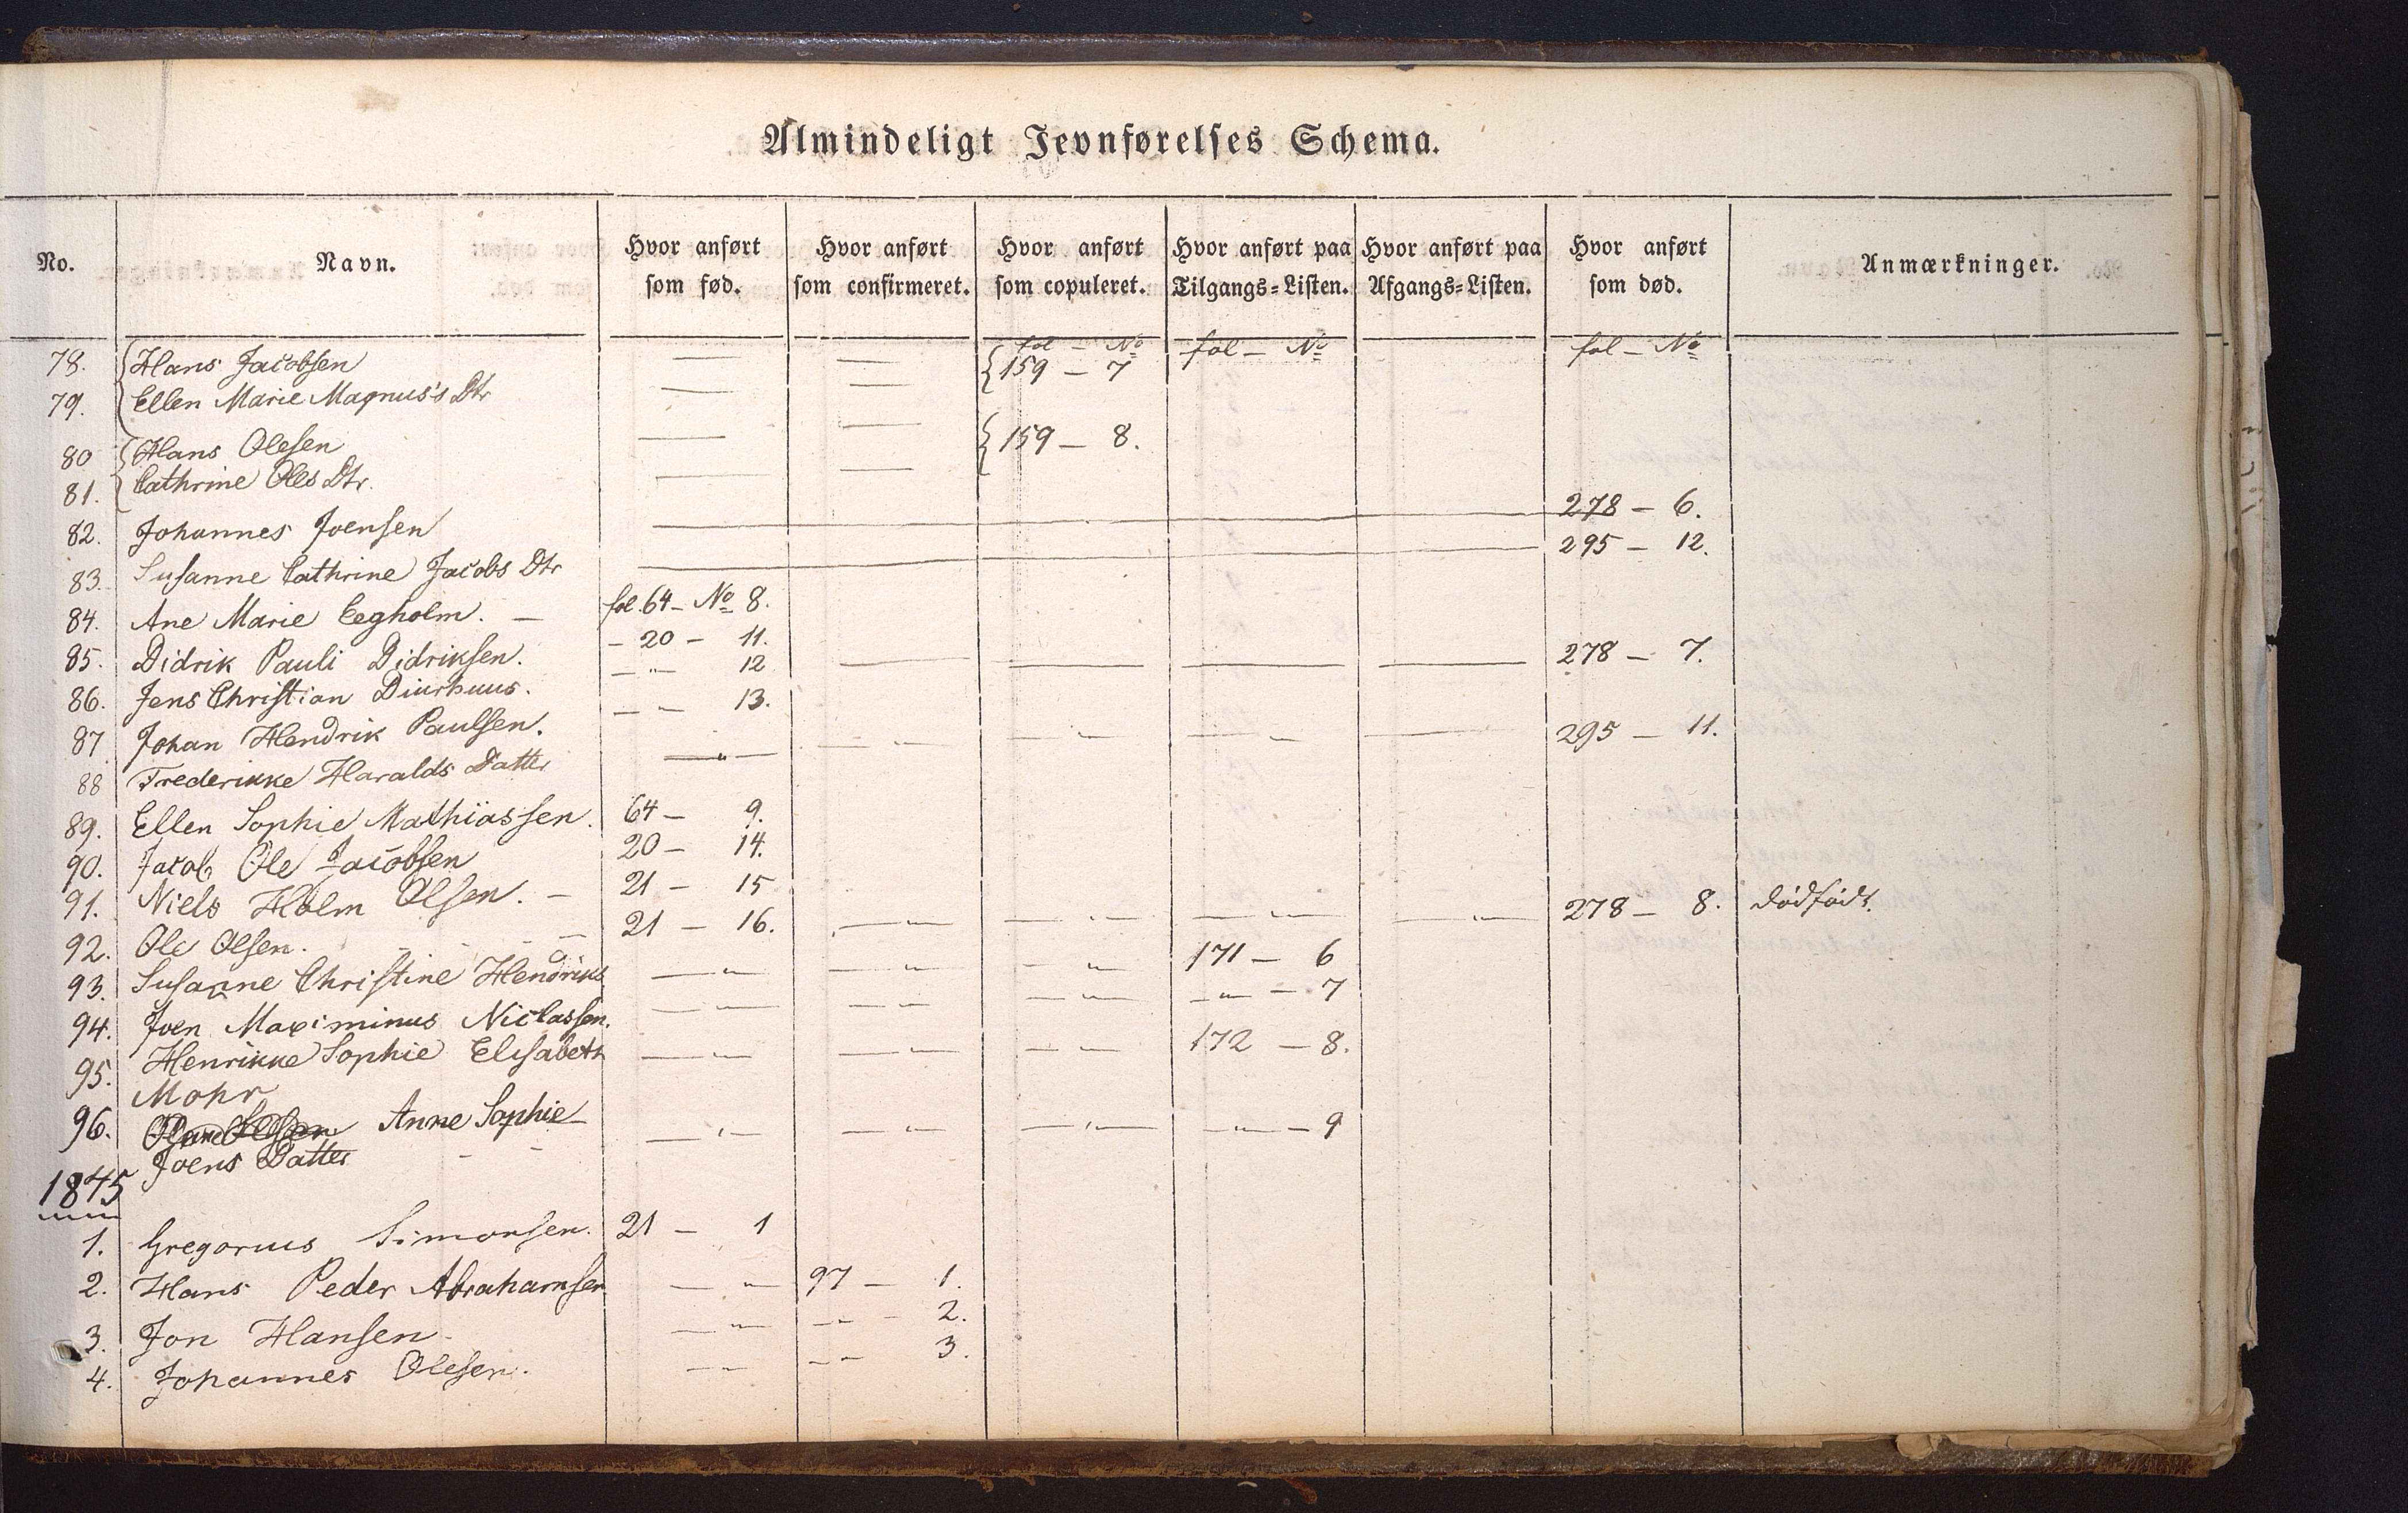 Almindeligt Jevnførelses Schema.
No. Navn. Hvor anført som fød. Hvor anført som confirmeret. Hvor anført som copuleret. Hvor anført paa Tilgangs-Listen. Hvor anført paa Afgangs-Listen. Hvor anført som død. Anmærkninger.
fol – No fol – No fol – No
78. Hans Jacobsen — — 159 – 7
79. Ellen Marie Magnus's Dtr — —
80 Hans Olesen — — 159 – 8.
81. Cathrine Oles Dtr. — —
82. Johannes Joensen — 278 – 6.
83. Susanne Cathrine Jacobs Dtr — 295 – 12.
84. Ane Marie Eegholm. – fol. 64 – No 8.
85. Didrik Pauli Didriksen. – 20 – 11.
86. Jens Christian Diurhuus. – " 12 — — — — 278 – 7.
87 Johan Hendrik Paulsen. – – 13.
88 Frederikke Haralds Datter — " — — " — — " — — " — — 295 – 11.
89. Ellen Sophie Mathiassen. 64 – 9.
90. Jacob Ole Jacobsen 20 – 14.
91. Niels Holm Olsen. – 21 – 15
92. Ole Olsen. – – – – 21 – 16. — " — — " — — " — — " — 278 – 8. dødfødt.
93. Susanne Christine Hendriks — " — — " — — " — 171 – 6
94. Joen Maximinus Niclassen. — " — — " — — " — – " – – 7
95. Henrikke Sophie Elisabeth — " — — " — — " — 172 – 8.
Mohr
96. Anne Sophie – — " — — " — — " — – " – – 9
Joens Datter – –
1845
1. Gregorius Simonsen. 21 – 1
2. Hans Peder Abrahamsen — " 97 – 1.
3. Jon Hansen – — " – " – 2.
4. Johannes Olesen. — " – – 3.